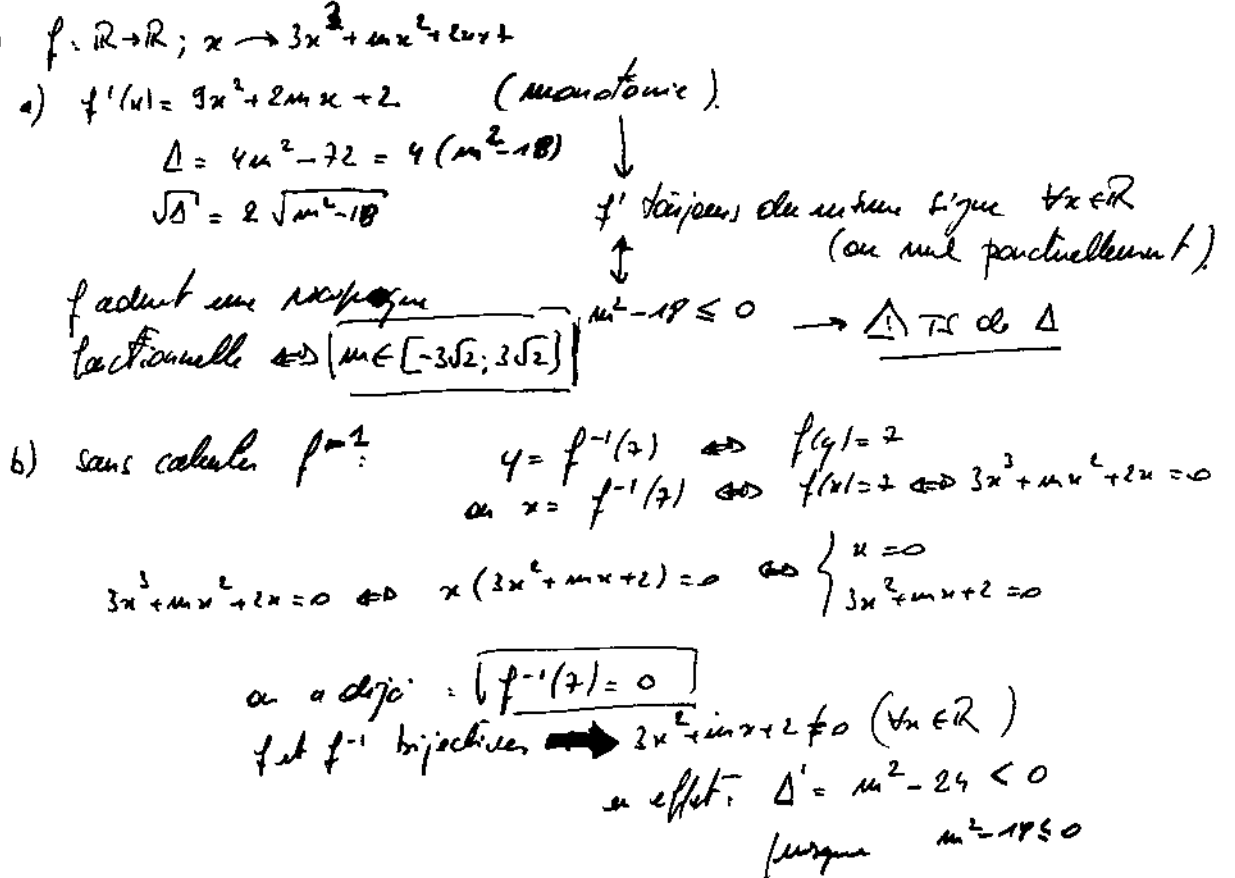 f : ℝ → ℝ ; x → 3x³ + mx² + 2x + 7
a) f'(x) = 9x² + 2mx + 2 (monotonie).
Δ = 4m² - 72 = 4(m² - 18)
√Δ = 2√(m² - 18)
f' toujours du même signe ∀x ∈ ℝ
(ou nul ponctuellement).
f admet une réciproque
m² - 18 ≤ 0 → ⚠ TS de Δ
fonctionnelle ⇔ m ∈ [-3√2 ; 3√2]
b) sans calculer f⁻¹ : y = f⁻¹(7) ⇔ f(y) = 7
ou x = f⁻¹(7) ⇔ f(x) = 7 ⇔ 3x³ + mx² + 2x = 0
3x³ + mx² + 2x = 0 ⇔ x(3x² + mx + 2) = 0 ⇔ { x = 0
3x² + mx + 2 = 0
on a déjà : f⁻¹(7) = 0
f et f⁻¹ bijectives ➡ 3x² + mx + 2 ≠ 0 (∀x ∈ ℝ)
en effet : Δ' = m² - 24 < 0
puisque m² - 18 ≤ 0